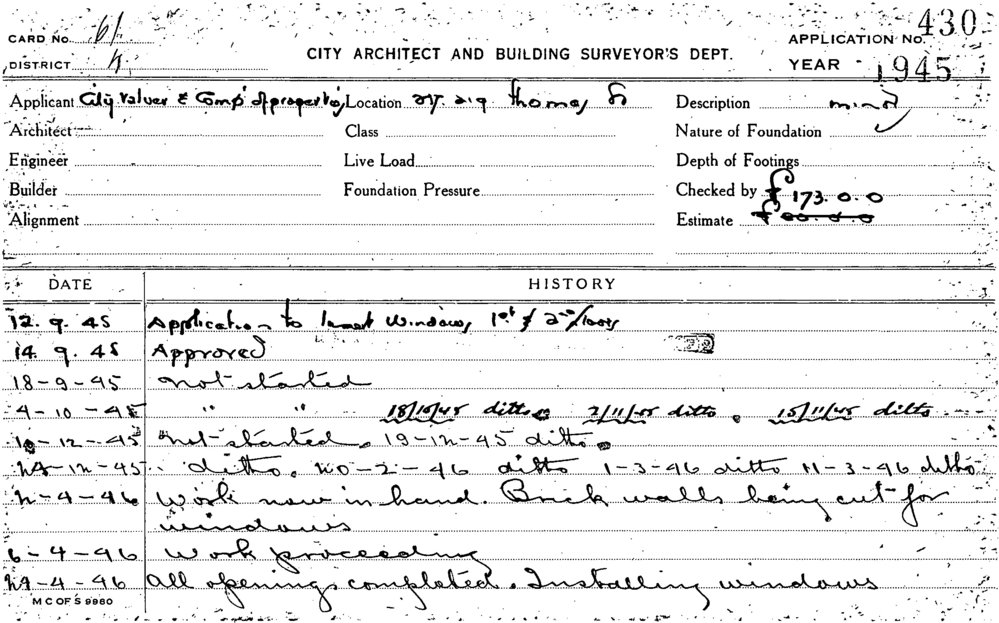 CARD No. 61
APPLICATION No. 430
DISTRICT 4
CITY ARCHITECT AND BUILDING SURVEYOR'S DEPT.
YEAR 1945
Applicant City Valuer & Comp. of properties Location Thomas St Description minor
Architect Class Nature of Foundation
Engineer Live Load Depth of Footings
Builder Foundation Pressure Checked by £173.0.0
Alignment Estimate
DATE HISTORY
12.9.45 Application to Insert Windows 1st & 2nd floors
14.9.45 Approved
18-9-45 Not started
4-10-45 " " 18/10/45 ditto. 2/11/45 ditto. 15/11/45 ditto
10-12-45 Not started. 19-12-45 ditto.
ditto. 20-2-46 ditto 1-3-46 ditto 11-3-46 ditto
2-4-46 Work now in hand. Brick walls being cut for
windows
6-4-46 Work proceeding
-4-46 All openings completed. Installing windows
M C OF S 9960